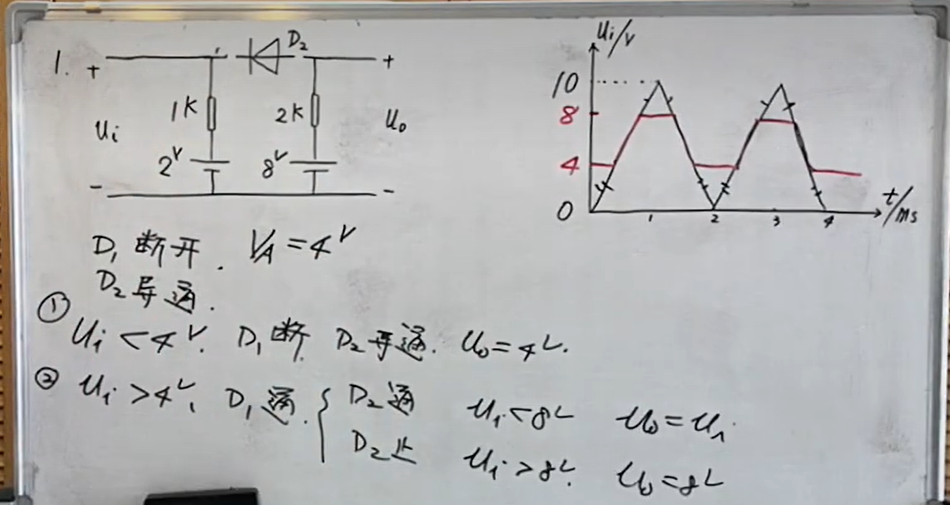 1. + D₂ +
1K 2K
Ui Uo
2V 8V
- -
Ui/V
10
8
4
0
1 2 3 4
t/ms
D₁ 断开. VA = 4V
D₂ 导通.
① Ui < 4V. D₁ 断 D₂ 导通. Uo = 4V.
② Ui > 4V、 D₁ 通. { D₂ 通 Ui < 8V Uo = Ui
D₂ 止 Ui > 8V. Uo = 8V